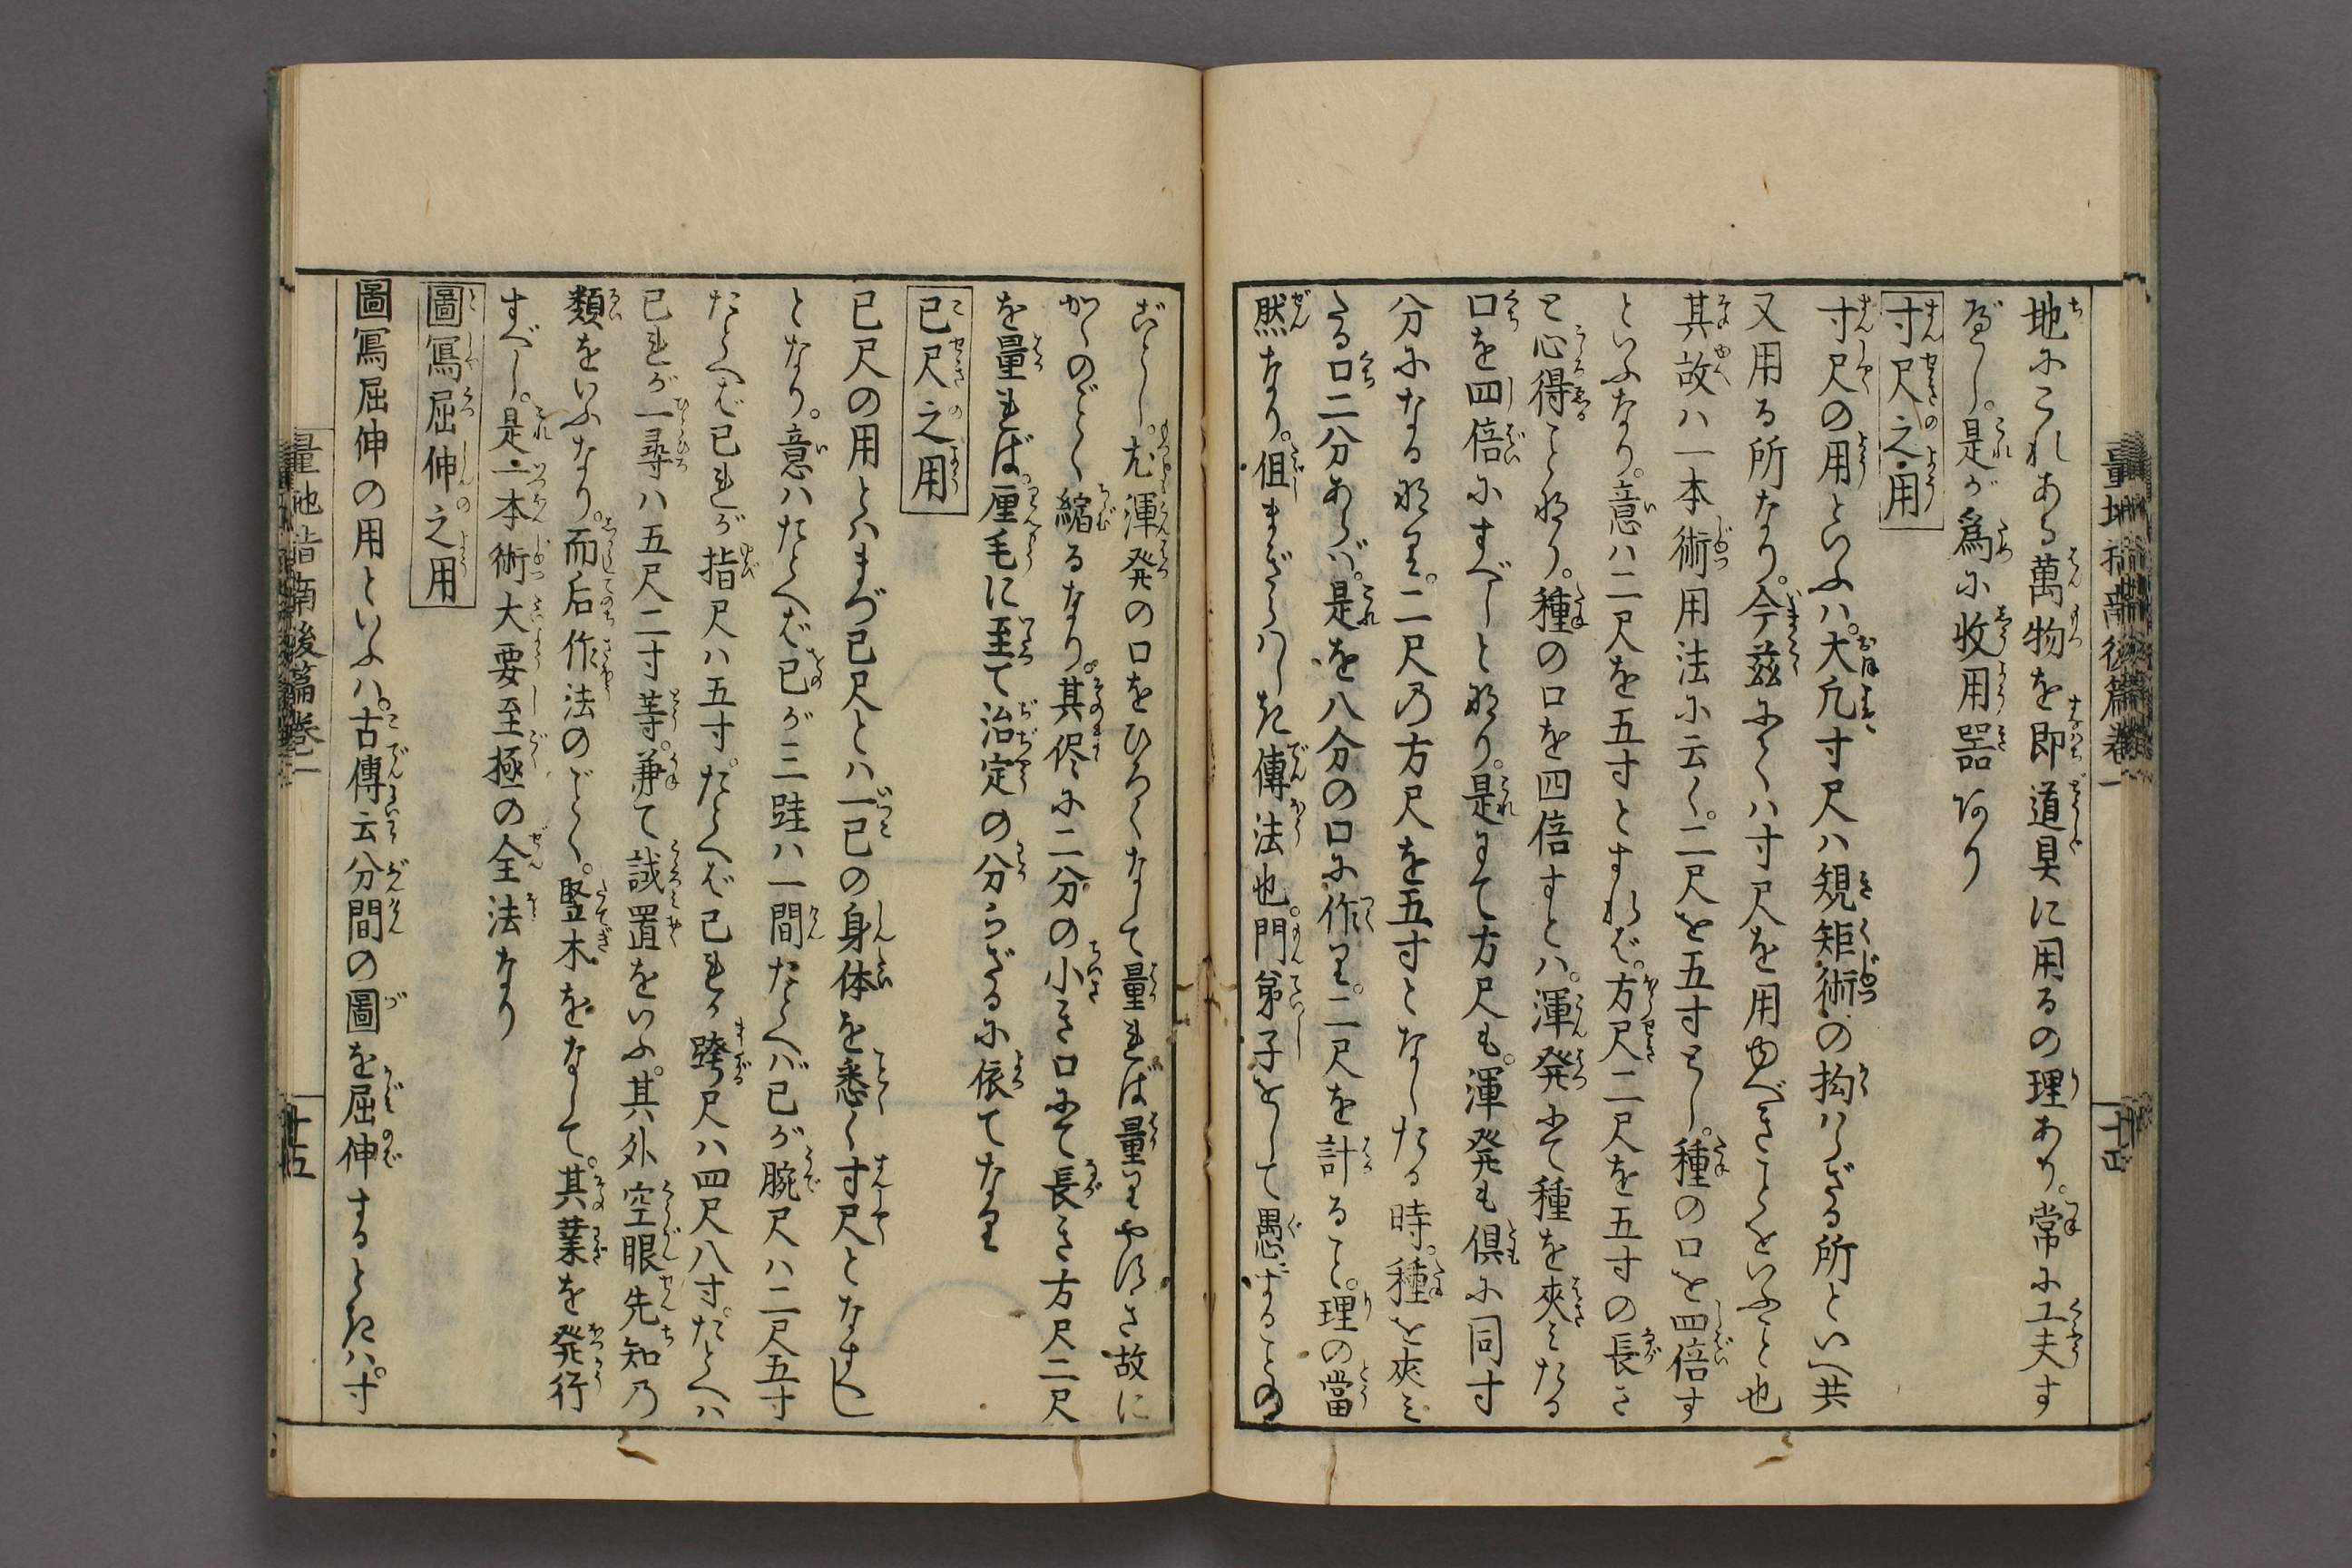 地にこれある萬物を即道具に用るの理あり。常に工夫す
べし。是が爲に收用器あり
寸尺之用
寸尺の用といふハ。大凢寸尺ハ規矩術の拘ハらざる所といへ共
又用る所なり。今茲にてハ寸尺を用ゆべきことをいふこと也
其故ハ一本術用法に云く。二尺を五寸とし。種の口を四倍す
といふなり。意ハ二尺を五寸とすれバ。方尺二尺を五寸の長さ
と心得ことなり。種の口を四倍すとハ。渾発にて種を夾ミたる
口を四倍にすべしとなり。是にて方尺も。渾発も倶に同寸
分になるなり。二尺の方尺を五寸となしたる時。種を夾ミ
たる口二分あらバ。是を八分の口に作り。二尺を計ること。理の當
然なり。但まぎらハしき傳法也。門弟子をして愚ずることの
ごとし。尤渾発の口をひろくなして量れば量りやすき故に
かくのごとく縮るなり。其侭に二分の小き口にて長き方尺二尺
を量れば。厘毛に至て治定の分らざるに依てなり
已尺之用
已尺の用とハまづ已尺とハ一已の身体を悉く寸尺となすべし
となり。意ハたとへば已が三跬ハ一間たとへバ已が腕尺ハ二尺五寸
たとへば已れが指尺ハ五寸。たとへば已れが跨尺ハ四尺八寸。たとへハ
已れが一尋ハ五尺二寸等。兼て試置をいふ。其外空眼先知の
類をいふなり。而后作法のごとく。竪木をなして。其業を発行
すべし。是一本術大要至極の全法なり
圖寫屈伸之用
圖寫屈伸の用といふハ。古傳云分間の圖を屈伸するときハ。寸
量地指南後篇巻一
十五